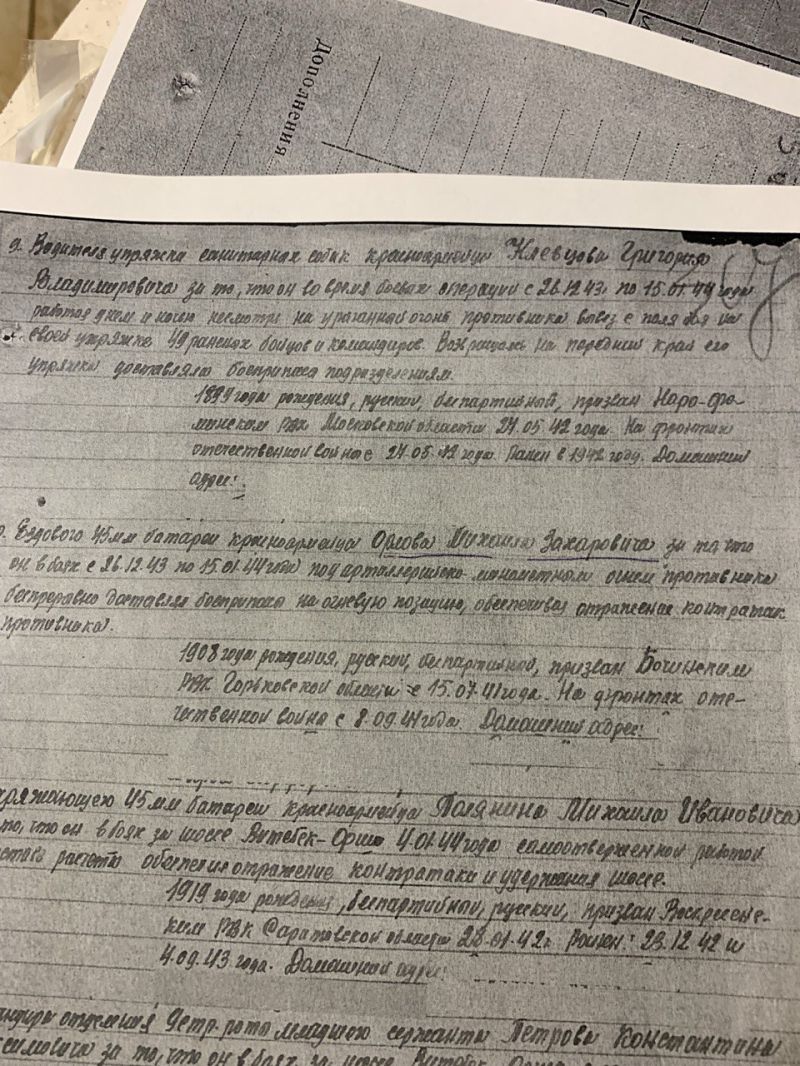 Дополнения
9. Водителя упряжки санитарных собак красноармейца Клевцова Григория
Владимировича за то, что он во время боевых операций с 26.12.43г по 15.01.44 года
работая днем и ночью несмотря на ураганной огонь противника вывез с поля боя на
своей упряжке раненых бойцов и командиров. Возвращаясь на передний край его
упряжка доставляла боеприпасы подразделениям.
1899 года рождения, русский, беспартийный, призван Наро-Фо-
минским РВК Московской области 27.05.42 года. На фронтах
отечественной войны с 27.05.42 года. Ранен в 1942 году. Домашний
адрес:
Ездового 45мм батареи красноармейца Орлова Михаила Захаровича за то что
он в боях с 26.12.43 по 15.01.44 года под артиллерийско-минометным огнем противника
беспрерывно доставлял боеприпасы на огневую позицию, обеспечивая отражение контратак
противника.
1908 года рождения, русский, беспартийный, призван
РВК Горьковской области с 15.07.41 года. На фронтах оте-
чественной войны с 8.09.41 года. Домашний адрес:
45мм батареи красноармейца Полянина Михаила Ивановича
то, что он в боях за шоссе Витебск-Орша 4.01.44 года самоотверженной работой
расчета обеспечил отражение контратаки и удержания шоссе.
1919 года рождения, беспартийный, русский, призван Воскресенс-
ким РВК Саратовской области 28.01.42г. Ранен: 23.12.42 и
4.09.43 года. Домашний адрес:
отделения роты младшего сержанта Петрова Константина
за то, что он в боях за шоссе Витебск